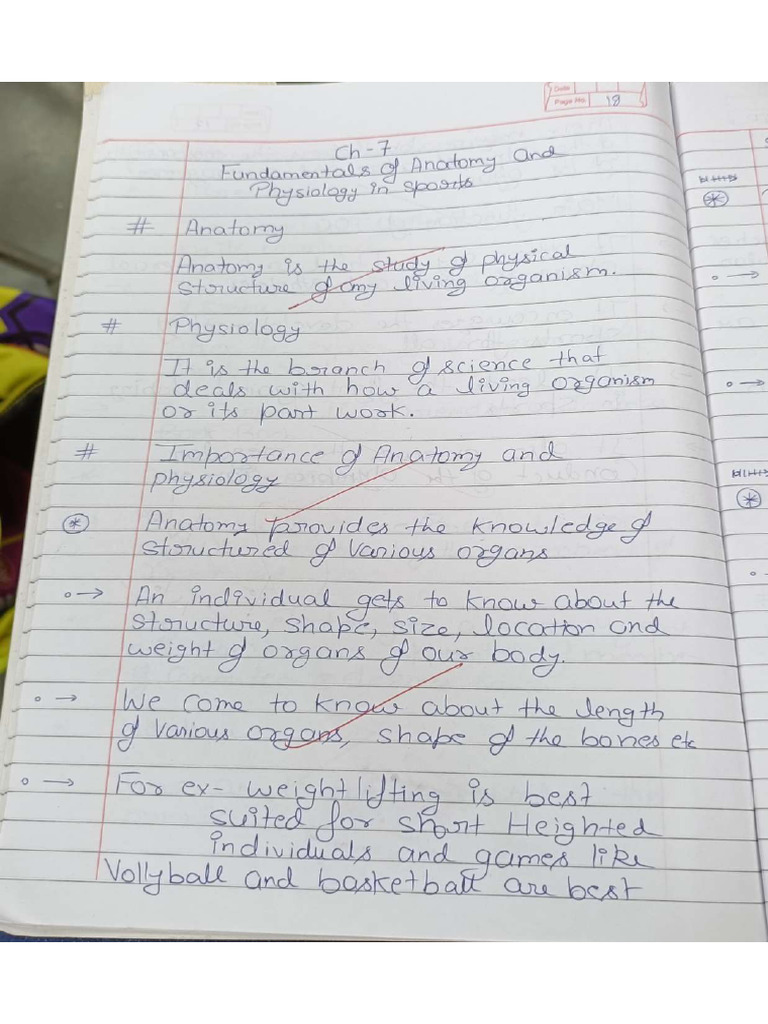 Date
Page No. 18
Ch-7
Fundamentals of Anatomy and
Physiology in sports
# Anatomy
Anatomy is the study of physical
structure of any living organism.
# Physiology
It is the branch of science that
deals with how a living organism
or its part work.
# Importance of Anatomy and
physiology
* Anatomy provides the knowledge of
structured of various organs
→ An individual gets to know about the
structure, shape, size, location and
weight of organs of our body.
→ We come to know about the length
of various organs, shape of the bones etc
→ For ex- weightlifting is best
suited for short Heighted
individuals and games like
Vollyball and basketball are best